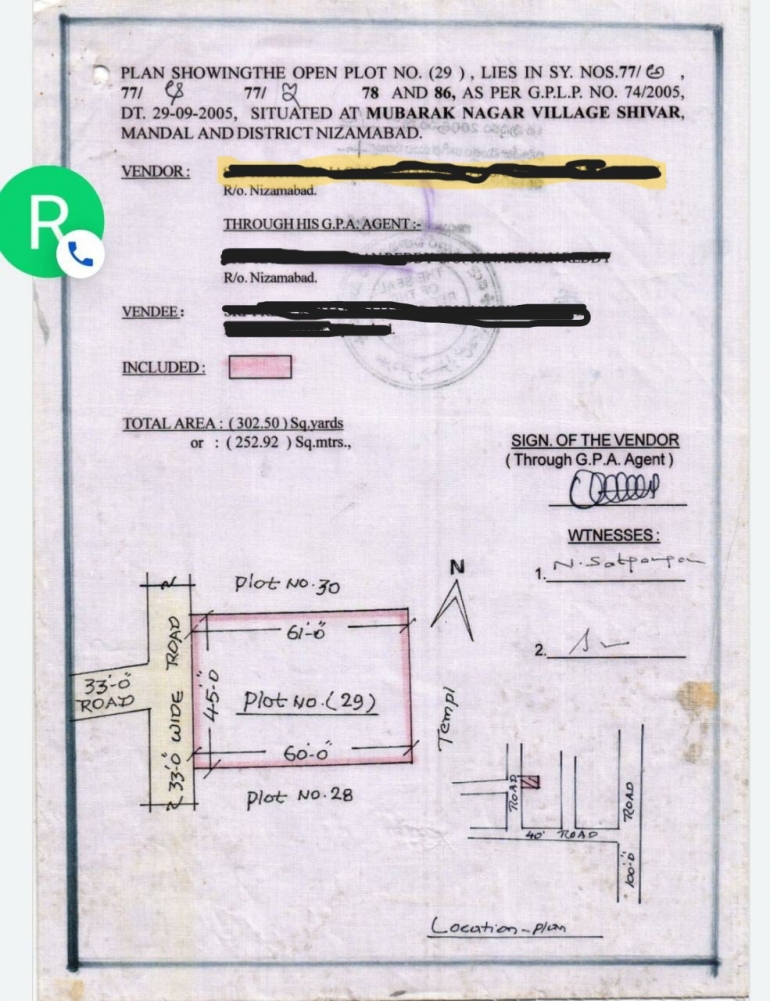 PLAN SHOWINGTHE OPEN PLOT NO. (29 ) , LIES IN SY. NOS.77/ ,
77/ 77/ 78 AND 86, AS PER G.P.L.P. NO. 74/2005,
DT. 29-09-2005, SITUATED AT MUBARAK NAGAR VILLAGE SHIVAR,
MANDAL AND DISTRICT NIZAMABAD.
VENDOR :
R/o. Nizamabad.
R
THROUGH HIS G.P.A. AGENT :-
R/o. Nizamabad.
VENDEE :
INCLUDED :
TOTAL AREA : ( 302.50 ) Sq.yards
or : ( 252.92 ) Sq.mtrs.,
SIGN. OF THE VENDOR
( Through G.P.A. Agent )
WTNESSES :
1.
2.
N
Plot No. 30
61'-0"
33'-0" WIDE ROAD
33'-0"
ROAD
45-0"
Plot No. (29)
60'-0"
Plot No. 28
Templ
ROAD
40' ROAD
ROAD
100'-0"
Location-Plan